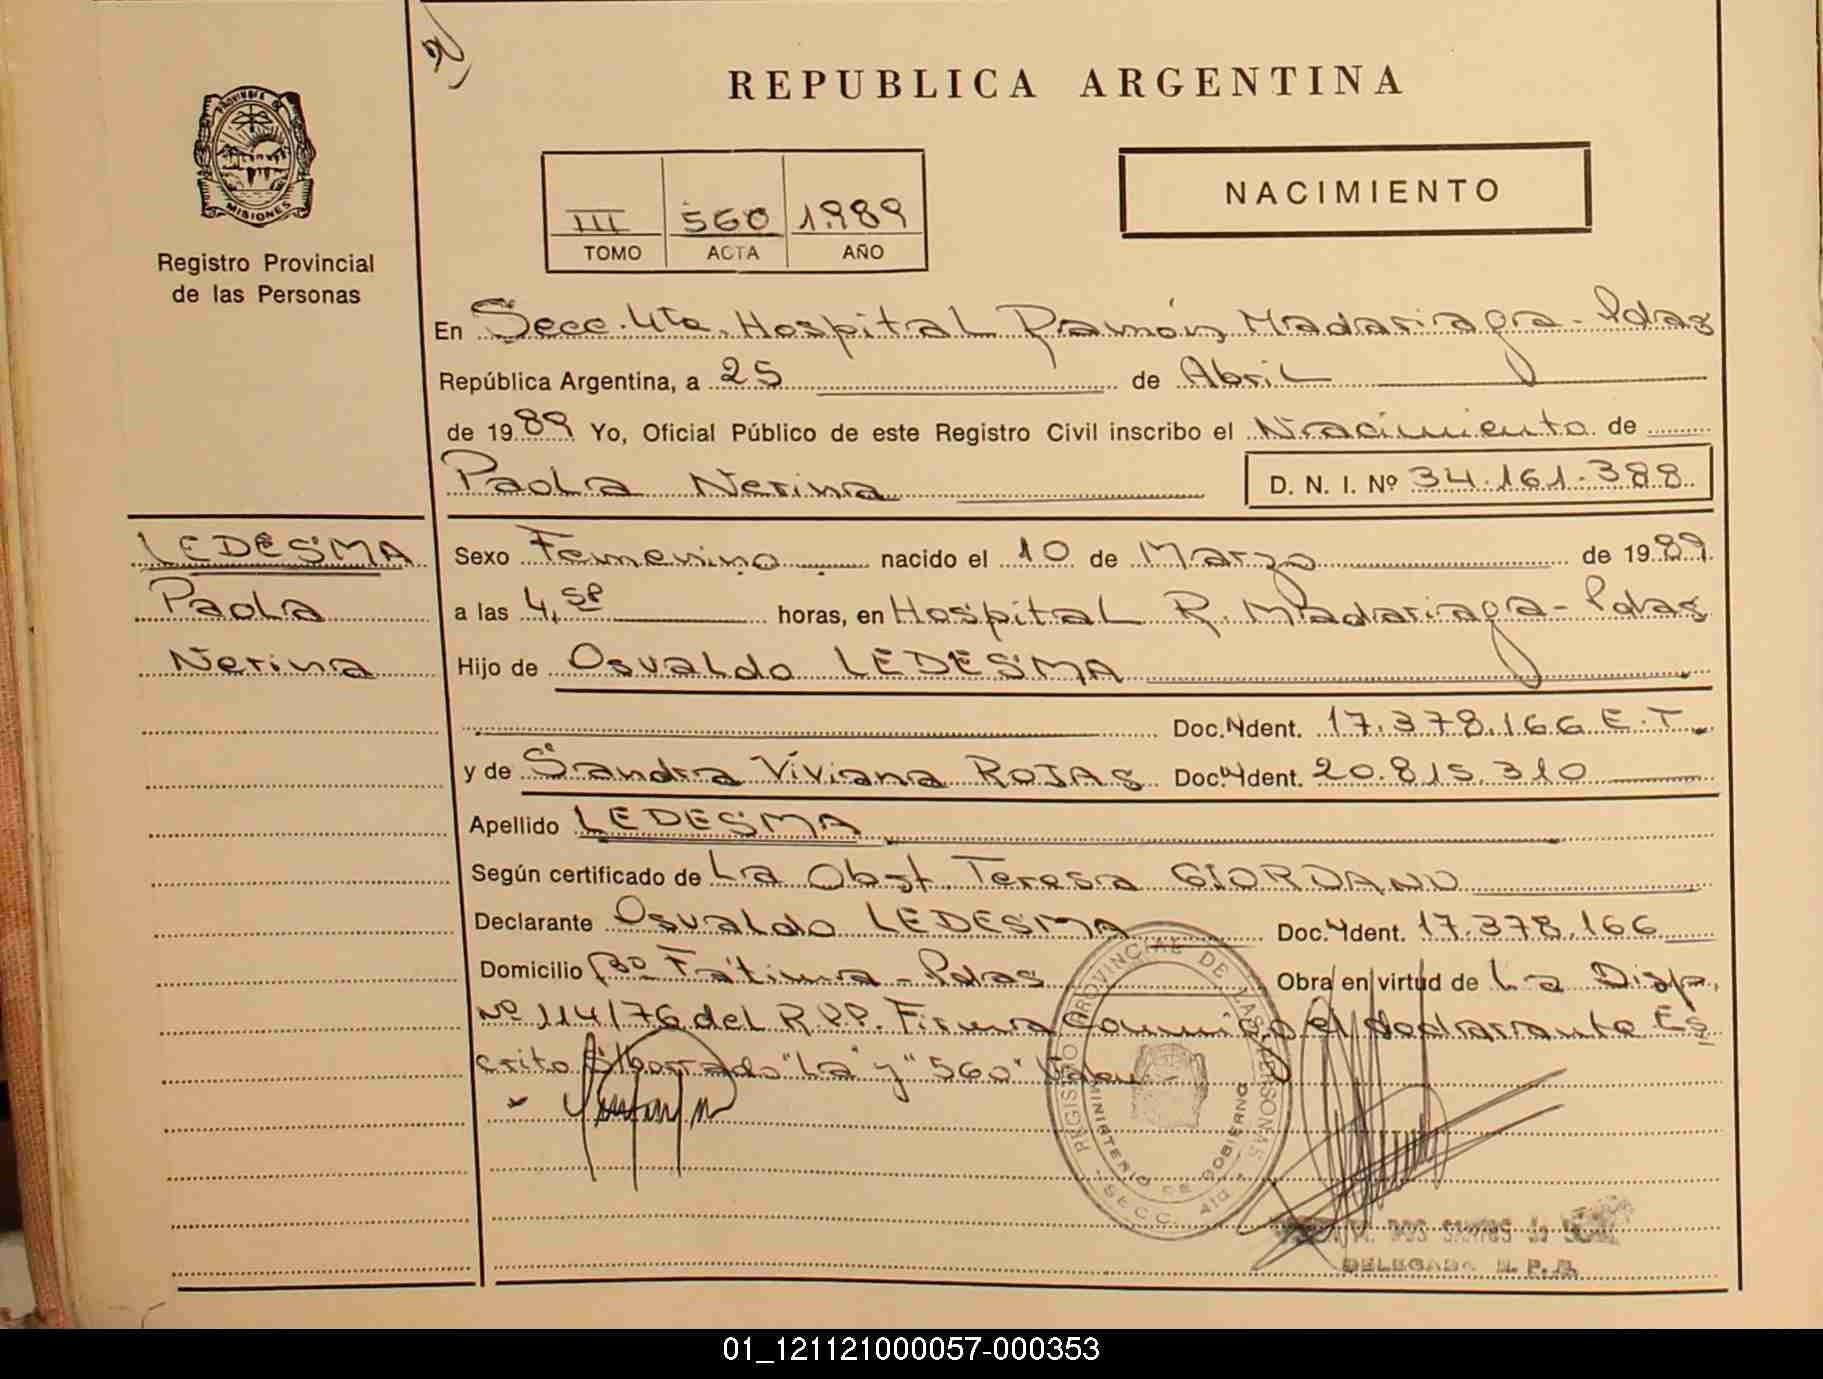 REPUBLICA ARGENTINA
PROVINCIA DE
MISIONES
Registro Provincial
de las Personas
III 560 1989
TOMO ACTA AÑO
NACIMIENTO
En Secc. 4ta. Hospital Ramón Madariaga - Pdas
República Argentina, a 25 de Abril
de 1989 Yo, Oficial Público de este Registro Civil inscribo el Nacimiento de
Paola Nerina D. N. I. Nº 34.161.388
LEDESMA
Paola
Nerina
Sexo Femenino nacido el 10 de Marzo de 1989
a las 4,50 horas, en Hospital R. Madariaga - Pdas
Hijo de Osvaldo LEDESMA
Doc. Ident. 17.378.166 E.T.
y de Sandra Viviana ROJAS Doc. Ident. 20.815.310
Apellido LEDESMA
Según certificado de La Obst. Teresa GIORDANO
Declarante Osvaldo LEDESMA Doc. Ident. 17.378.166
Domicilio Bº Fátima - Pdas Obra en virtud de La Disp.
Nº 114/76 del R.P.P. Firma Conmigo el declarante Es
crito S/borrado "La" y "560" Vale
REGISTRO PROVINCIAL DE LAS PERSONAS
MINISTERIO DE GOBIERNO
SECC. 4ta
DOS SANTOS de
DELEGADA R. P. P.
01_121121000057-000353